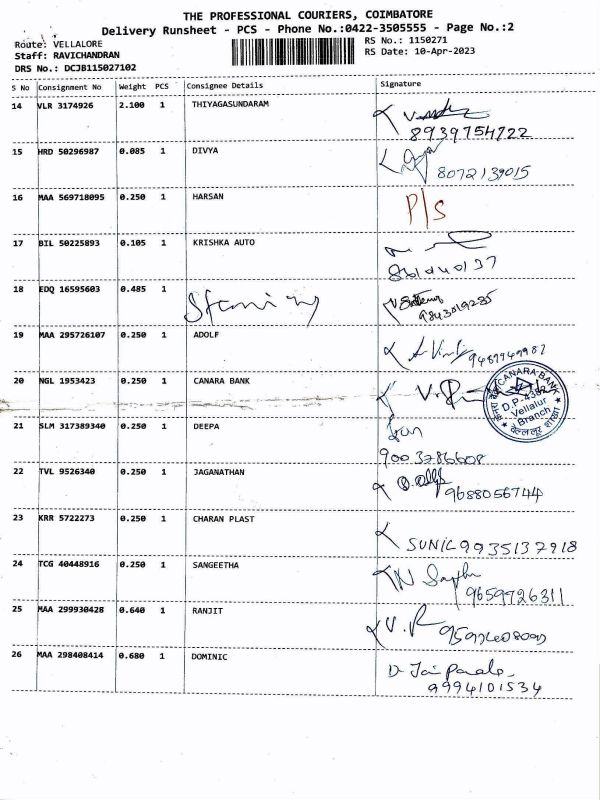 THE PROFESSIONAL COURIERS, COIMBATORE
Delivery Runsheet - PCS - Phone No.:0422-3505555 - Page No.:2
Route: VELLALORE
RS No.: 1150271
Staff: RAVICHANDRAN
RS Date: 10-Apr-2023
DRS No.: DCJB115027102
S No Consignment No Weight PCS Consignee Details Signature
14 VLR 3174926 2.100 1 THIYAGASUNDARAM
8939754722
15 HRD 50296987 0.085 1 DIVYA
8072139015
16 MAA 569718095 0.250 1 HARSAN P/S
17 BIL 50225893 0.105 1 KRISHKA AUTO
18 EDQ 16595603 0.485 1
9843019235
19 MAA 295726107 0.250 1 ADOLF
9487949982
20 NGL 1953423 0.250 1 CANARA BANK
CANARA BANK
Vellalur
Branch
21 SLM 317389340 0.250 1 DEEPA
9003786608
22 TVL 9526340 0.250 1 JAGANATHAN
9688056744
23 KRR 5722273 0.250 1 CHARAN PLAST
SUNIL 9935137918
24 TCG 40448916 0.250 1 SANGEETHA
9659726311
25 MAA 299930428 0.640 1 RANJIT
26 MAA 298408414 0.680 1 DOMINIC
9994101534